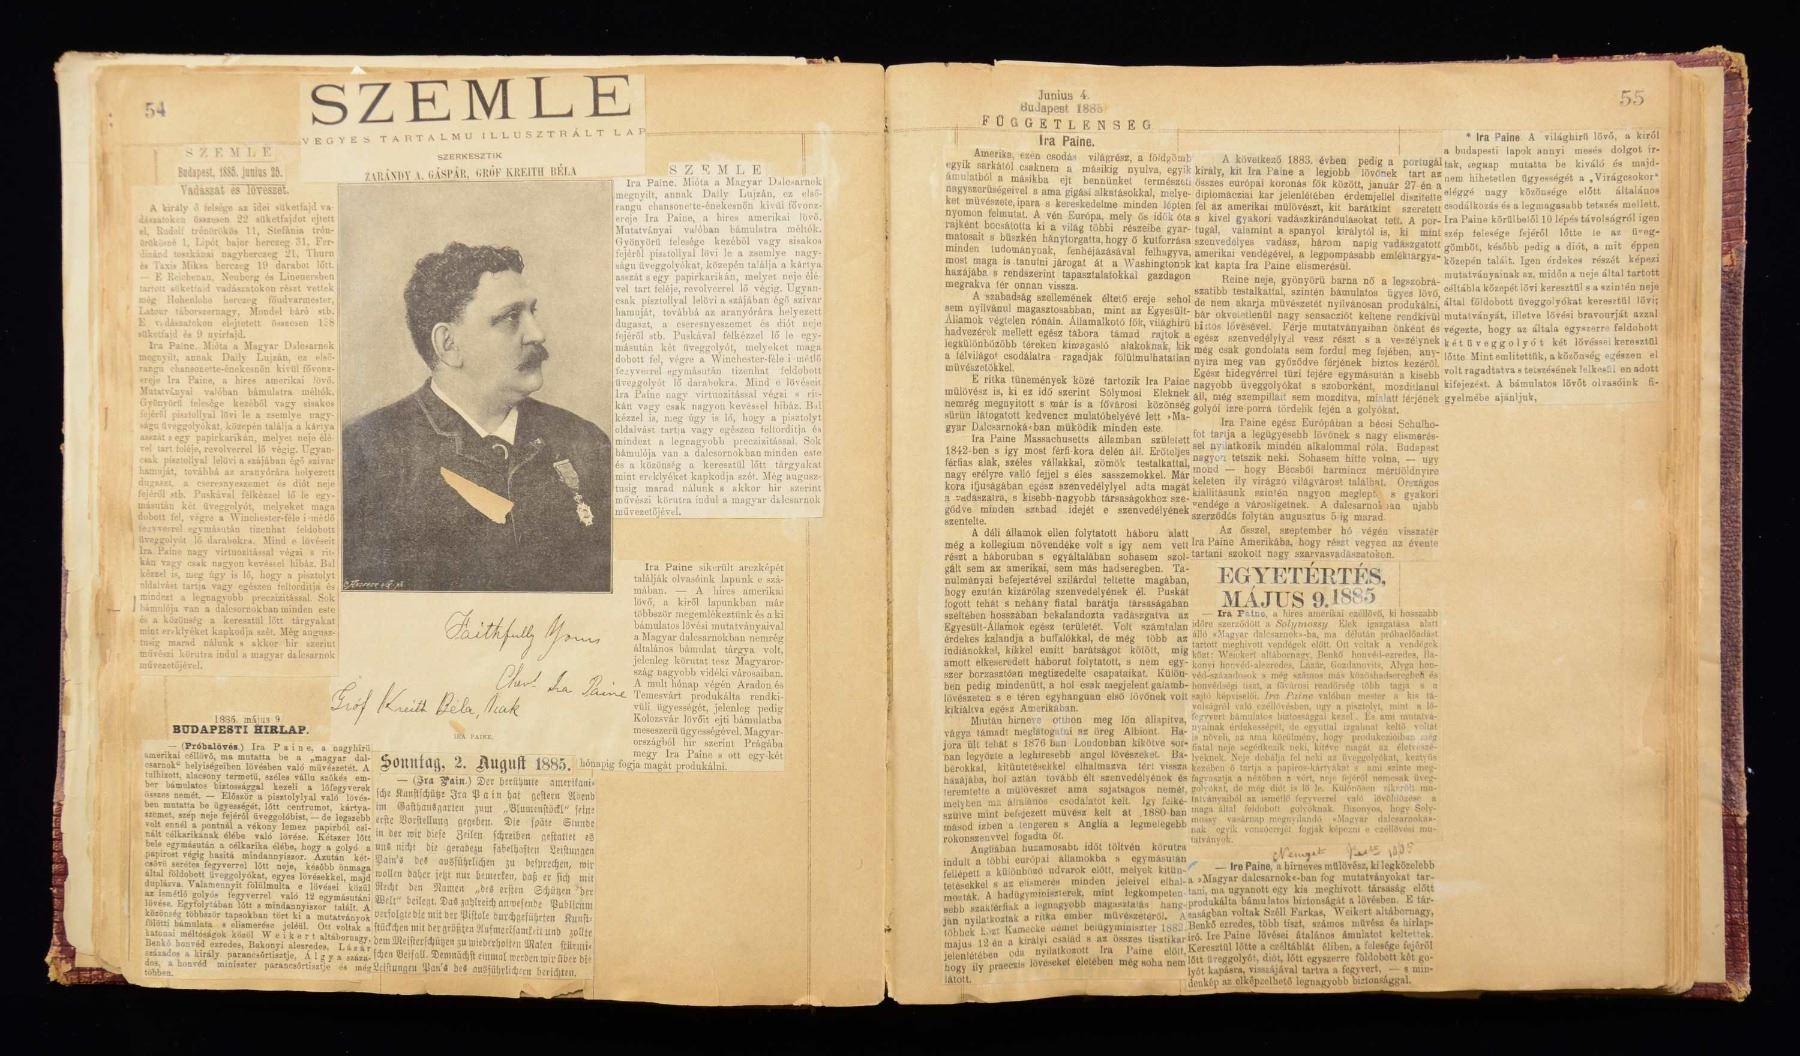 54
SZEMLE
VEGYES TARTALMU ILLUSZTRÁLT LAP
SZERKESZTIK
ZARÁNDY A. GÁSPÁR, GRÓF KREITH BÉLA
SZEMLE
Budapest, 1885. junius 25.
Vadászat és lövészet.
A király ő felsége az idei süketfajd va-
dászatokon összesen 22 süketfajdot ejtett
el, Rudolf trónörökös 11, Stefánia trón-
örökösné 1, Lipót bajor herczeg 31, Fer-
dinánd toszkánai nagyherczeg 21, Thurn
és Taxis Miksa herczeg 19 darabot lőtt.
— E Reichenau, Neuberg és
tartott süketfajd vadászatokon részt vettek
még Hohenlohe herczeg főudvarmester,
Latour táborszernagy, Mondel báró stb.
E vadászatokon elejtetett összesen 158
süketfajd és 9 nyirfajd.
Ira Paine. Mióta a Magyar Dalcsarnok
megnyilt, annak Daily Lujzán, ez első-
rangu chansonette-énekesnőn kivül fővonz-
ereje Ira Paine, a hires amerikai lövő.
Mutatványai valóban bámulatra méltók.
Gyönyörü felesége kezéből vagy sisakos
fejéről pisztollyal lövi le a zsemlye nagy-
ságu üveggolyókat, közepén találja a kártya
asszát s egy papirkarikán, melyet neje élé-
vel tart feléje, revolverrel lő végig. Ugyan-
csak pisztollyal lelövi a szájában égő szivar
hamuját, továbbá az aranyórára helyezett
dugaszt, a cseresnyeszemet és diót neje
fejéről stb. Puskával félkézzel lő le egy-
másután két üveggolyót, melyeket maga
dobott fel, végre a Winchester-féle ismétlő
fegyverrel egymásután tizenhat feldobott
üveggolyót lő darabokra. Mind e lövéseit
Ira Paine nagy virtuozitással végzi s rit-
kán vagy csak nagyon kevéssel hibáz. Bal
kézzel is, meg úgy is lő, hogy a pisztolyt
oldalvást tartja vagy egészen felforditja és
mindezt a legnagyobb preczizitással. Sok
bámulója van a dalcsornokban minden este
és a közönség a keresztül lőtt tárgyakat
mint ereklyéket kapkodja szét. Még augusz-
tusig marad nálunk s akkor hir szerint
művészi körutra indul a magyar dalcsarnok
művezetőjével.
SZEMLE
Ira Paine. Mióta a Magyar Dalcsarnok
megnyilt, annak Daily Lujzán, ez első-
rangu chansonette-énekesnőn kivül fővonz-
ereje Ira Paine, a hires amerikai lövő.
Mutatványai valóban bámulatra méltók.
Gyönyörü felesége kezéből vagy sisakos
fejéről pisztollyal lövi le a zsemlye nagy-
ságu üveggolyókat, közepén találja a kártya
asszát s egy papirkarikán, melyet neje élé-
vel tart feléje, revolverrel lő végig. Ugyan-
csak pisztollyal lelövi a szájában égő szivar
hamuját, továbbá az aranyórára helyezett
dugaszt, a cseresnyeszemet és diót neje
fejéről stb. Puskával félkézzel lő le egy-
másután két üveggolyót, melyeket maga
dobott fel, végre a Winchester-féle ismétlő
fegyverrel egymásután tizenhat feldobott
üveggolyót lő darabokra. Mind e lövéseit
Ira Paine nagy virtuozitással végzi s rit-
kán vagy csak nagyon kevéssel hibáz. Bal
kézzel is, meg úgy is lő, hogy a pisztolyt
oldalvást tartja vagy egészen felforditja és
mindezt a legnagyobb preczizitással. Sok
bámulója van a dalcsarnokban minden este
és a közönség a keresztül lőtt tárgyakat
mint ereklyéket kapkodja szét. Még augusz-
tusig marad nálunk s akkor hir szerint
művészi körutra indul a magyar dalcsarnok
művezetőjével.
Ira Paine sikerült arczképét
találják olvasóink lapunk e szá-
mában. — A hires amerikai
lövő, a kiről lapunkban már
többször megemlékeztünk és a ki
bámulatos lövési mutatványaival
a Magyar dalcsarnokban nemrég
általános bámulat tárgya volt,
jelenleg körutat tesz Magyaror-
szág nagyobb vidéki városaiban.
A mult hónap végén Aradon és
Temesvárt produkálta rendki-
vüli ügyességét, jelenleg pedig
Kolozsvár lövőit ejti bámulatba
meseszerü ügyességével. Magyar-
országból hir szerint Prágába
megy Ira Paine s ott egy-két
hónapig fogja magát produkálni.
Faithfully Yours
Chevr Ira Paine
Gróf Kreith Béla, nak
IRA PAINE.
1885. május 9
BUDAPESTI HIRLAP.
— (Próbalövés.) Ira Paine, a nagyhirü
amerikai céllövő, ma mutatta be a „magyar dal-
csarnok" helyiségeiben lövésben való művészetét. A
tulhizott, alacsony termetü, széles vállu szőkés em-
ber bámulatos biztossággal kezeli a lőfegyverek
összes nemét. — Először a pisztolylyal való lövés-
ben mutatta be ügyességét, lőtt centrumot, kártya-
szemet, szép neje fejéről üveggolóbist, — de legszebb
volt ennél a pontnál a vékony lemez papirból csi-
nált célkarikának élébe való lövése. Kétszer lőtt
bele egymásután a célkarika élébe, hogy a golyó a
papirost végig hasitá mindannyiszor. Azután két-
csövü serétes fegyverrel lőtt neje, később önmaga
által földobott üveggolyókat, egyes lövésekkel, majd
duplázva. Valamennyit fölülmulta e lövései közül
az ismétlő golyós fegyverrel való 12 egymásutáni
lövése. Egyfolytában lőtt s mindannyiszor talált. A
közönség többször tapsokban tört ki a mutatványok
fölötti bámulata s elismerése jeléül. Ott voltak a
katonai méltóságok közül Weikert altábornagy,
Benkő honvéd ezredes, Bakonyi alezredes, Lázár
százados a király parancsőrtisztje, Álgya száza-
dos, a honvéd miniszter parancsőrtisztje és még
többen.
Sonntag, 2. August 1885.
— (Ira Pain.) Der berühmte amerikani-
sche Kunstschütze Ira Pain hat gestern Abend
im Gasthausgarten zum „Blumenstöckl" seine
erste Vorstellung gegeben. Die späte Stunde
in der wir diese Zeilen schreiben gestattet es
uns nicht die geradezu fabelhaften Leistungen
Pain's des ausführlichen zu besprechen, wir
wollen daher jetzt nur bemerken, daß er sich mit
Recht den Namen „des ersten Schützen der
Welt" beilegt. Das zahlreich anwesende Publicum
verfolgte die mit der Pistole durchgeführten Kunst-
stückchen mit der größten Aufmerksamkeit und zollte
dem Meisterschützen zu wiederholten Malen stürmi-
schen Beifall. Demnächst einmal werden wir über die
Leistungen Pan's des ausführlicheren berichten.
55
Junius 4.
Budapest 1885
FÜGGETLENSEG
Ira Paine.
Amerika, ezen csodás világrész, a földgömb
egyik sarkától csaknem a másikig nyulva, egyik
ámulatból a másikba ejt bennünket természeti
nagyszerüségeivel s ama gigási alkotásokkal, melye-
ket müvészete, ipara s kereskedelme minden lépten
nyomon felmutat. A vén Európa, mely ős idők óta
rajként bocsátotta ki a világ többi részeibe gyar-
matosait s büszkén hánytorgatta, hogy ő kutforrása
minden tudománynak, fenhéjázásával felhagyva,
most maga is tanulni járogat át a Washingtonok
hazájába s rendszerint tapasztalatokkal gazdagon
megrakva tér onnan vissza.
A szabadság szellemének éltető ereje sehol
sem nyilvánul magasztosabban, mint az Egyesült-
Államok végtelen rónáin. Államalkotó fők, világhirü
hadvezérek mellett egész tábora támad rajtok a
legkülönbözőbb téreken kimagasló alakoknak, kik
a félvilágot csodálatra ragadják fölülmulhatatlan
müvészetökkel.
E ritka tünemények közé tartozik Ira Paine
mülövész is, ki ez idő szerint Sólymosi Eleknek
nemrég megnyitott s már is a fővárosi közönség
sürün látogatott kedvencz mulatóhelyévé lett »Ma-
gyar Dalcsarnoká«ban müködik minden este.
Ira Paine Massachusetts államban született
1842-ben s így most férfi-kora delén áll. Erőteljes
férfias alak, széles vállakkal, zömök testalkattal,
nagy erélyre valló fejjel s éles sasszemekkel. Már
kora ifjuságában egész szenvedélylyel adta magát
a vadászatra, s kisebb-nagyobb társaságokhoz sze-
gődve minden szabad idejét e szenvedélyének
szentelte.
A déli államok ellen folytatott háboru alatt
még a kollegium növendéke volt s így nem vett
részt a háboruban s egyáltalában sohasem szol-
gált sem az amerikai, sem más hadseregben. Ta-
nulmányai befejeztével szilárdul feltette magában,
hogy ezután kizárólag szenvedélyének él. Puskát
fogott tehát s nehány fiatal barátja társaságában
szeltében hosszában bekalandozta vadászgatva az
Egyesült-Államok egész területét. Volt számtalan
érdekes kalandja a buffalókkal, de még több az
indiánokkal, kikkel emitt barátságot kötött, míg
amott elkeseredett háborut folytatott, s nem egy-
szer borzasztóan megtizedelte csapataikat. Külön-
ben pedig mindenütt, a hol csak megjelent galamb-
lövészeten s e téren egyhanguan első lövőnek volt
kikiáltva egész Amerikában.
Miután hirneve otthon meg lőn állapitva,
vágya támadt meglátogatni az öreg Albiont. Ha-
jóra ült tehát s 1876 ban Londonban kikötve sor-
ban legyőzte a leghiresebb angol lövészeket. Ba-
bérokkal, kitüntetésekkel elhalmozva tért vissza
hazájába, hol aztán tovább élt szenvedélyének és
teremtette a mülövészet ama sajátságos nemét,
melyben ma általános csodálatot kelt. Igy felké-
szülve mint befejezett müvész kelt át 1880-ban
másod izben a tengeren s Anglia a legmelegebb
rokonszenvvel fogadta őt.
Angliában huzamosabb időt töltvén körutra
indult a többi európai államokba s egymásután
fellépett a különböző udvarok előtt, melyek kitün-
tetésekkel s az elismerés minden jeleivel elhal-
mozták. A hadügyminiszterek, mint legkompeten-
sebb szakférfiak a legnagyobb magasztalás hang-
ján nyilatkoztak a ritka ember müvészetéről. A
többek közt Kamecke német belügyminiszter 1882.
május 12 én a királyi család s az összes tisztikar
jelenlétében oda nyilatkozott Ira Paine előtt,
hogy ily praeczis lövéseket életében még soha nem
látott.
A következő 1883. évben pedig a portugál
király, kit Ira Paine a legjobb lövőnek tart az
összes európai koronás fők között, január 27-én a
diplomácziai kar jelenlétében érdemjellel díszitette
fel az amerikai mülövészt, kit barátkint szeretett
s kivel gyakori vadászkirándulásokat tett. A por-
tugál, valamint a spanyol királytól is, ki mint
szenvedélyes vadász, három napig vadászgatott
amerikai vendégével, a legpompásabb emléktárgya-
kat kapta Ira Paine elismerésül.
Reine neje, gyönyörü barna nő a legszobrá-
szatibb testalkattal, szintén bámulatos ügyes lövő,
de nem akarja müvészetét nyilvánosan produkálni,
bár okvetetlenül nagy sensacziót keltene rendkivül
biztos lövésével. Férje mutatványaiban önként és
egész szenvedélylyel vesz részt s a veszélynek
még csak gondolata sem fordul meg fejében, any-
nyira meg van győződve férjének biztos kezéről.
Egész hidegvérrel tüzi fejére egymásután a kisebb
nagyobb üveggolyókat s szoborként, mozditlanul
áll, még szempilláit sem mozditva, mialatt férjének
golyói izre-porrá tördelik fején a golyókat.
Ira Paine egész Európában a bécsi Schulho-
fot tartja a legügyesebb lövőnek s nagy elismerés-
sel nyilatkozik minden alkalommal róla. Budapest
nagyon tetszik neki. Sohasem hitte volna, — ugy
mond — hogy Bécsből harmincz mértföldnyire
keleten ily virágzó világvárost találhat. Országos
kiállitásunk szintén nagyon meglepte s gyakori
vendége a városligetnek. A dalcsarnokban ujabb
szerződés folytán augusztus 5-ig marad.
Az ősszel, szeptember hó végén visszatér
Ira Paine Amerikába, hogy részt vegyen az évente
tartani szokott nagy szarvasvadászatokon.
EGYETÉRTÉS,
MÁJUS 9. 1885
— Ira Paine, a hires amerikai czéllövő, ki hosszabb
időre szerződött a Solymossy Elek igazgatása alatt
álló »Magyar dalcsarnok«-ba, ma délután próbaelőadást
tartott meghivott vendégek előtt. Ott voltak a vendégek
közt: Weickert altábornagy, Benkő honvéd-ezredes, Ba-
konyi honvéd-alezredes, Lázár, Gozdanovits, Álgya hon-
véd-századosok s még számos más közöshadseregbeli és
honvédségi tiszt, a fővárosi rendőrség több tagja s a
sajtó képviselői. Ira Paine valóban mester a kis tá-
volságról való czéllövésben, ugy a pisztolyt, mint a lő-
fegyvert bámulatos biztossággal kezel. És ami mutatvá-
nyainak érdekességét, de egyuttal izgalmat keltő voltát
is növeli, az ama körülmény, hogy produkczióiban még
fiatal neje segédkezik neki, kitéve magát az életveszé-
lyeknek. Neje dobálja fel neki az üveggolyókat, keztyüs
kezében ő tartja a papiros-kártyákat s ami szinte meg-
fagyasztja a nézőben a vért, neje fejéről nemcsak üveg-
golyókat, de még diót is lő le. Különösen sikerült mu-
tatványaiból az ismétlő fegyverrel való lövöldözése a
maga által feldobott golyóknak. Bizonyos, hogy Soly-
mossy vasárnap megnyilandó »Magyar dalcsarnoka«-
nak egyik vonzóerejét fogják képezni e czéllövési mu-
tatványok.
Nemzet 1885
— Ire Paine, a hirneves mülövész, ki legközelebb
a »Magyar dalcsarnok«-ban fog mutatványokat tar-
tani, ma ugyanott egy kis meghivott társaság előtt
produkálta bámulatos biztonságát a lövésben. E tár-
saságban voltak Széll Farkas, Weikert altábornagy,
Benkő ezredes, több tiszt, számos müvész és hirlap-
iró. Ire Paine lövései átalános ámulatot keltettek.
Keresztül lőtte a czéltáblát éliben, a felesége fejéről
lőtt üveggolyót, diót, lőtt egyszerre földobott két go-
lyót kapásra, visszájával tartva a fegyvert, — s min-
denkép az elképzelhető legnagyobb biztonsággal.
* Ira Paine. A világhirü lövő, a kiről
a budapesti lapok annyi mesés dolgot ir-
tak, tegnap mutatta be kiváló és majd-
nem hihetetlen ügyességét a „Virágcsokor"
eléggé nagy közönsége előtt általános
csodálkozás és a legmagasabb tetszés mellett.
Ira Paine körülbelől 10 lépés távolságról igen
szép felesége fejéről lőtte le az üveg-
gömböt, később pedig a diót, a mit éppen
közepén talált. Igen érdekes részét képezi
mutatványainak az, midőn a neje által tartott
céltábla közepét lövi keresztül s a szintén neje
által földobott üveggolyókat keresztül lövi;
mutatványát, illetve lövési bravourját azzal
végezte, hogy az általa egyszerre feldobott
két üveggolyót két lövéssel keresztül
lőtte. Mint említettük, a közönség egészen el
volt ragadtatva s tetszésének lelkesül en adott
kifejezést. A bámulatos lövőt olvasóink fi-
gyelmébe ajánljuk,